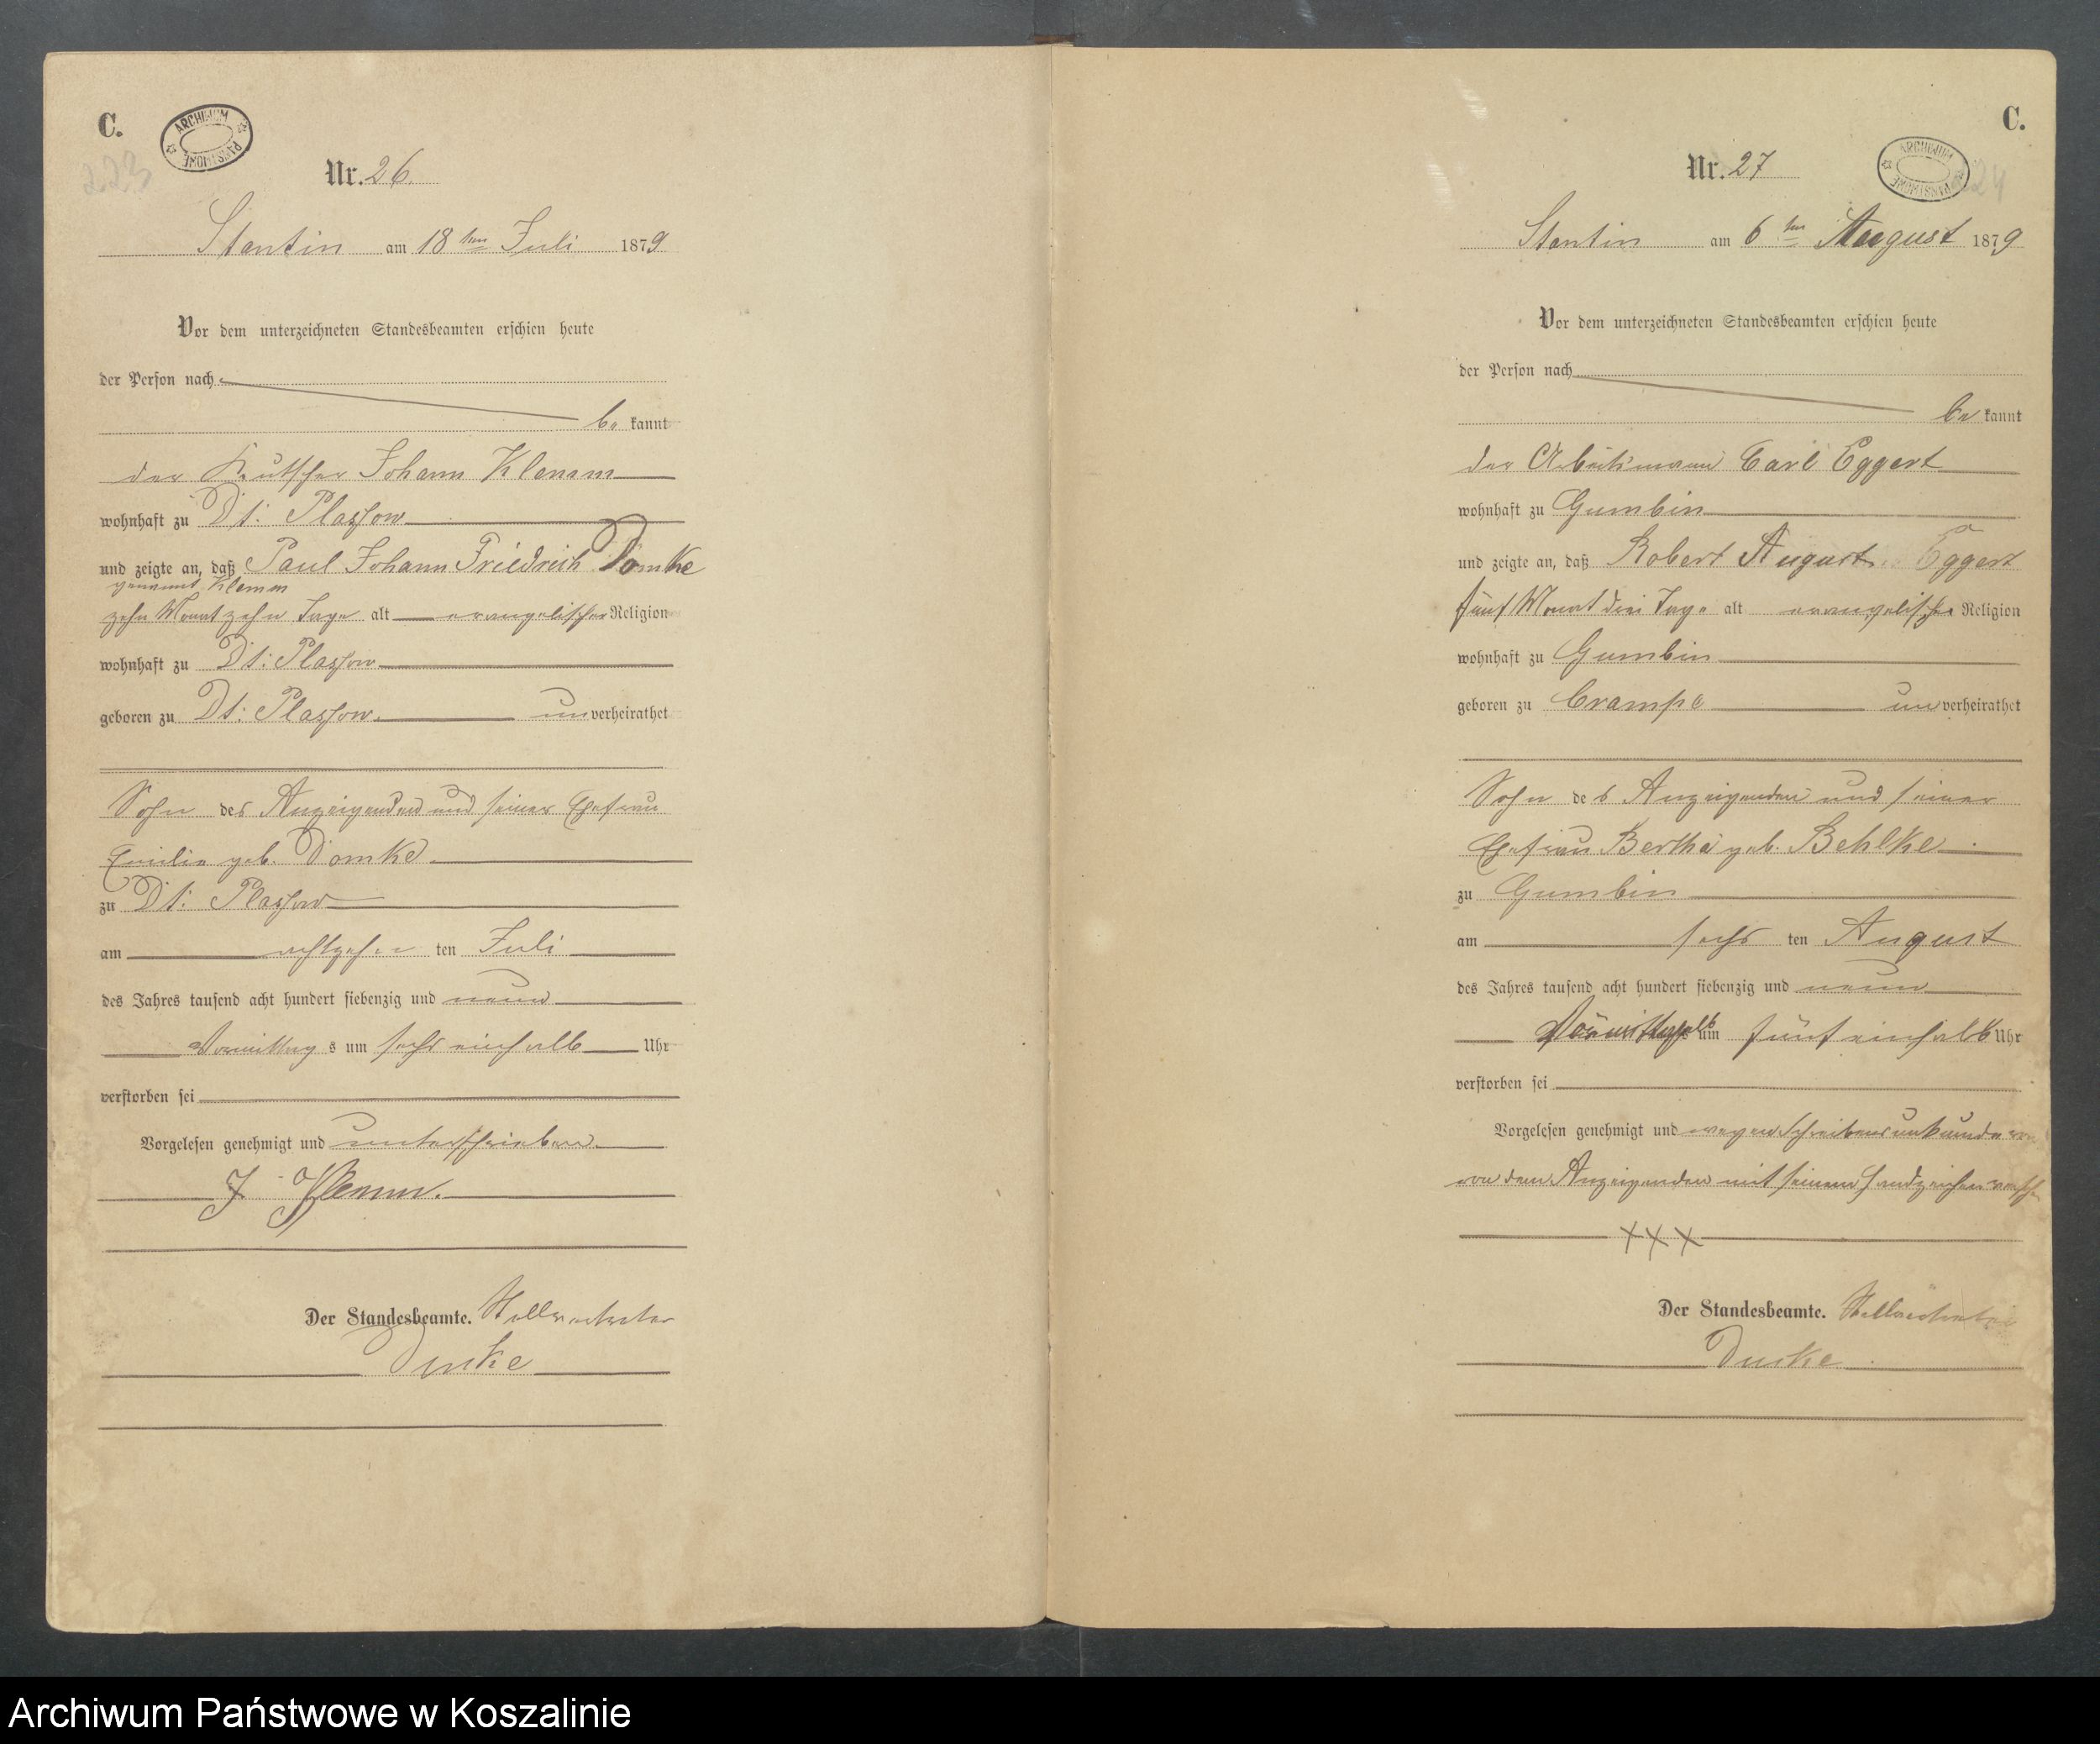 C.
ARCHIWUM PAŃSTWOWE
223
Nr. 26.
Stantin am 18ten Juli 1879
Vor dem unterzeichneten Standesbeamten erschien heute
der Person nach
be kannt
der Kutscher Johann Klemm
wohnhaft zu Dt: Plassow
und zeigte an, daß Paul Johann Friedrich Domke
genannt Klemm
zehn Monat zehn Tage alt evangelischer Religion
wohnhaft zu Dt: Plassow
geboren zu Dt: Plassow. unverheirathet
Sohn des Anzeigenden und seiner Ehefrau
Emilie geb. Domke
zu Dt: Plassow
am achtzehn ten Juli
des Jahres tausend acht hundert siebenzig und neun
Vormittag s um sechs einhalb Uhr
verstorben sei
Vorgelesen genehmigt und unterschrieben
J Klemm.
Der Standesbeamte. Stellvertreter
Duske
C.
ARCHIWUM PAŃSTWOWE
Nr. 27
Stantin am 6ten August 1879
Vor dem unterzeichneten Standesbeamten erschien heute
der Person nach
be kannt
der Arbeitsmann Carl Eggert
wohnhaft zu Gumbin
und zeigte an, daß Robert August Eggert
fünf Monat drei Tage alt evangelischer Religion
wohnhaft zu Gumbin
geboren zu Crampe unverheirathet
Sohn des Anzeigenden und seiner
Ehefrau Bertha geb. Behlke
zu Gumbin
am sechs ten August
des Jahres tausend acht hundert siebenzig und neun
Vormittags um fünf einhalb Uhr
verstorben sei
Vorgelesen genehmigt und wegen Schreibensunkunde
von dem Anzeigenden mit seinem Handzeichen versehen
XXX
Der Standesbeamte. Stellvertreter
Duske
Archiwum Państwowe w Koszalinie